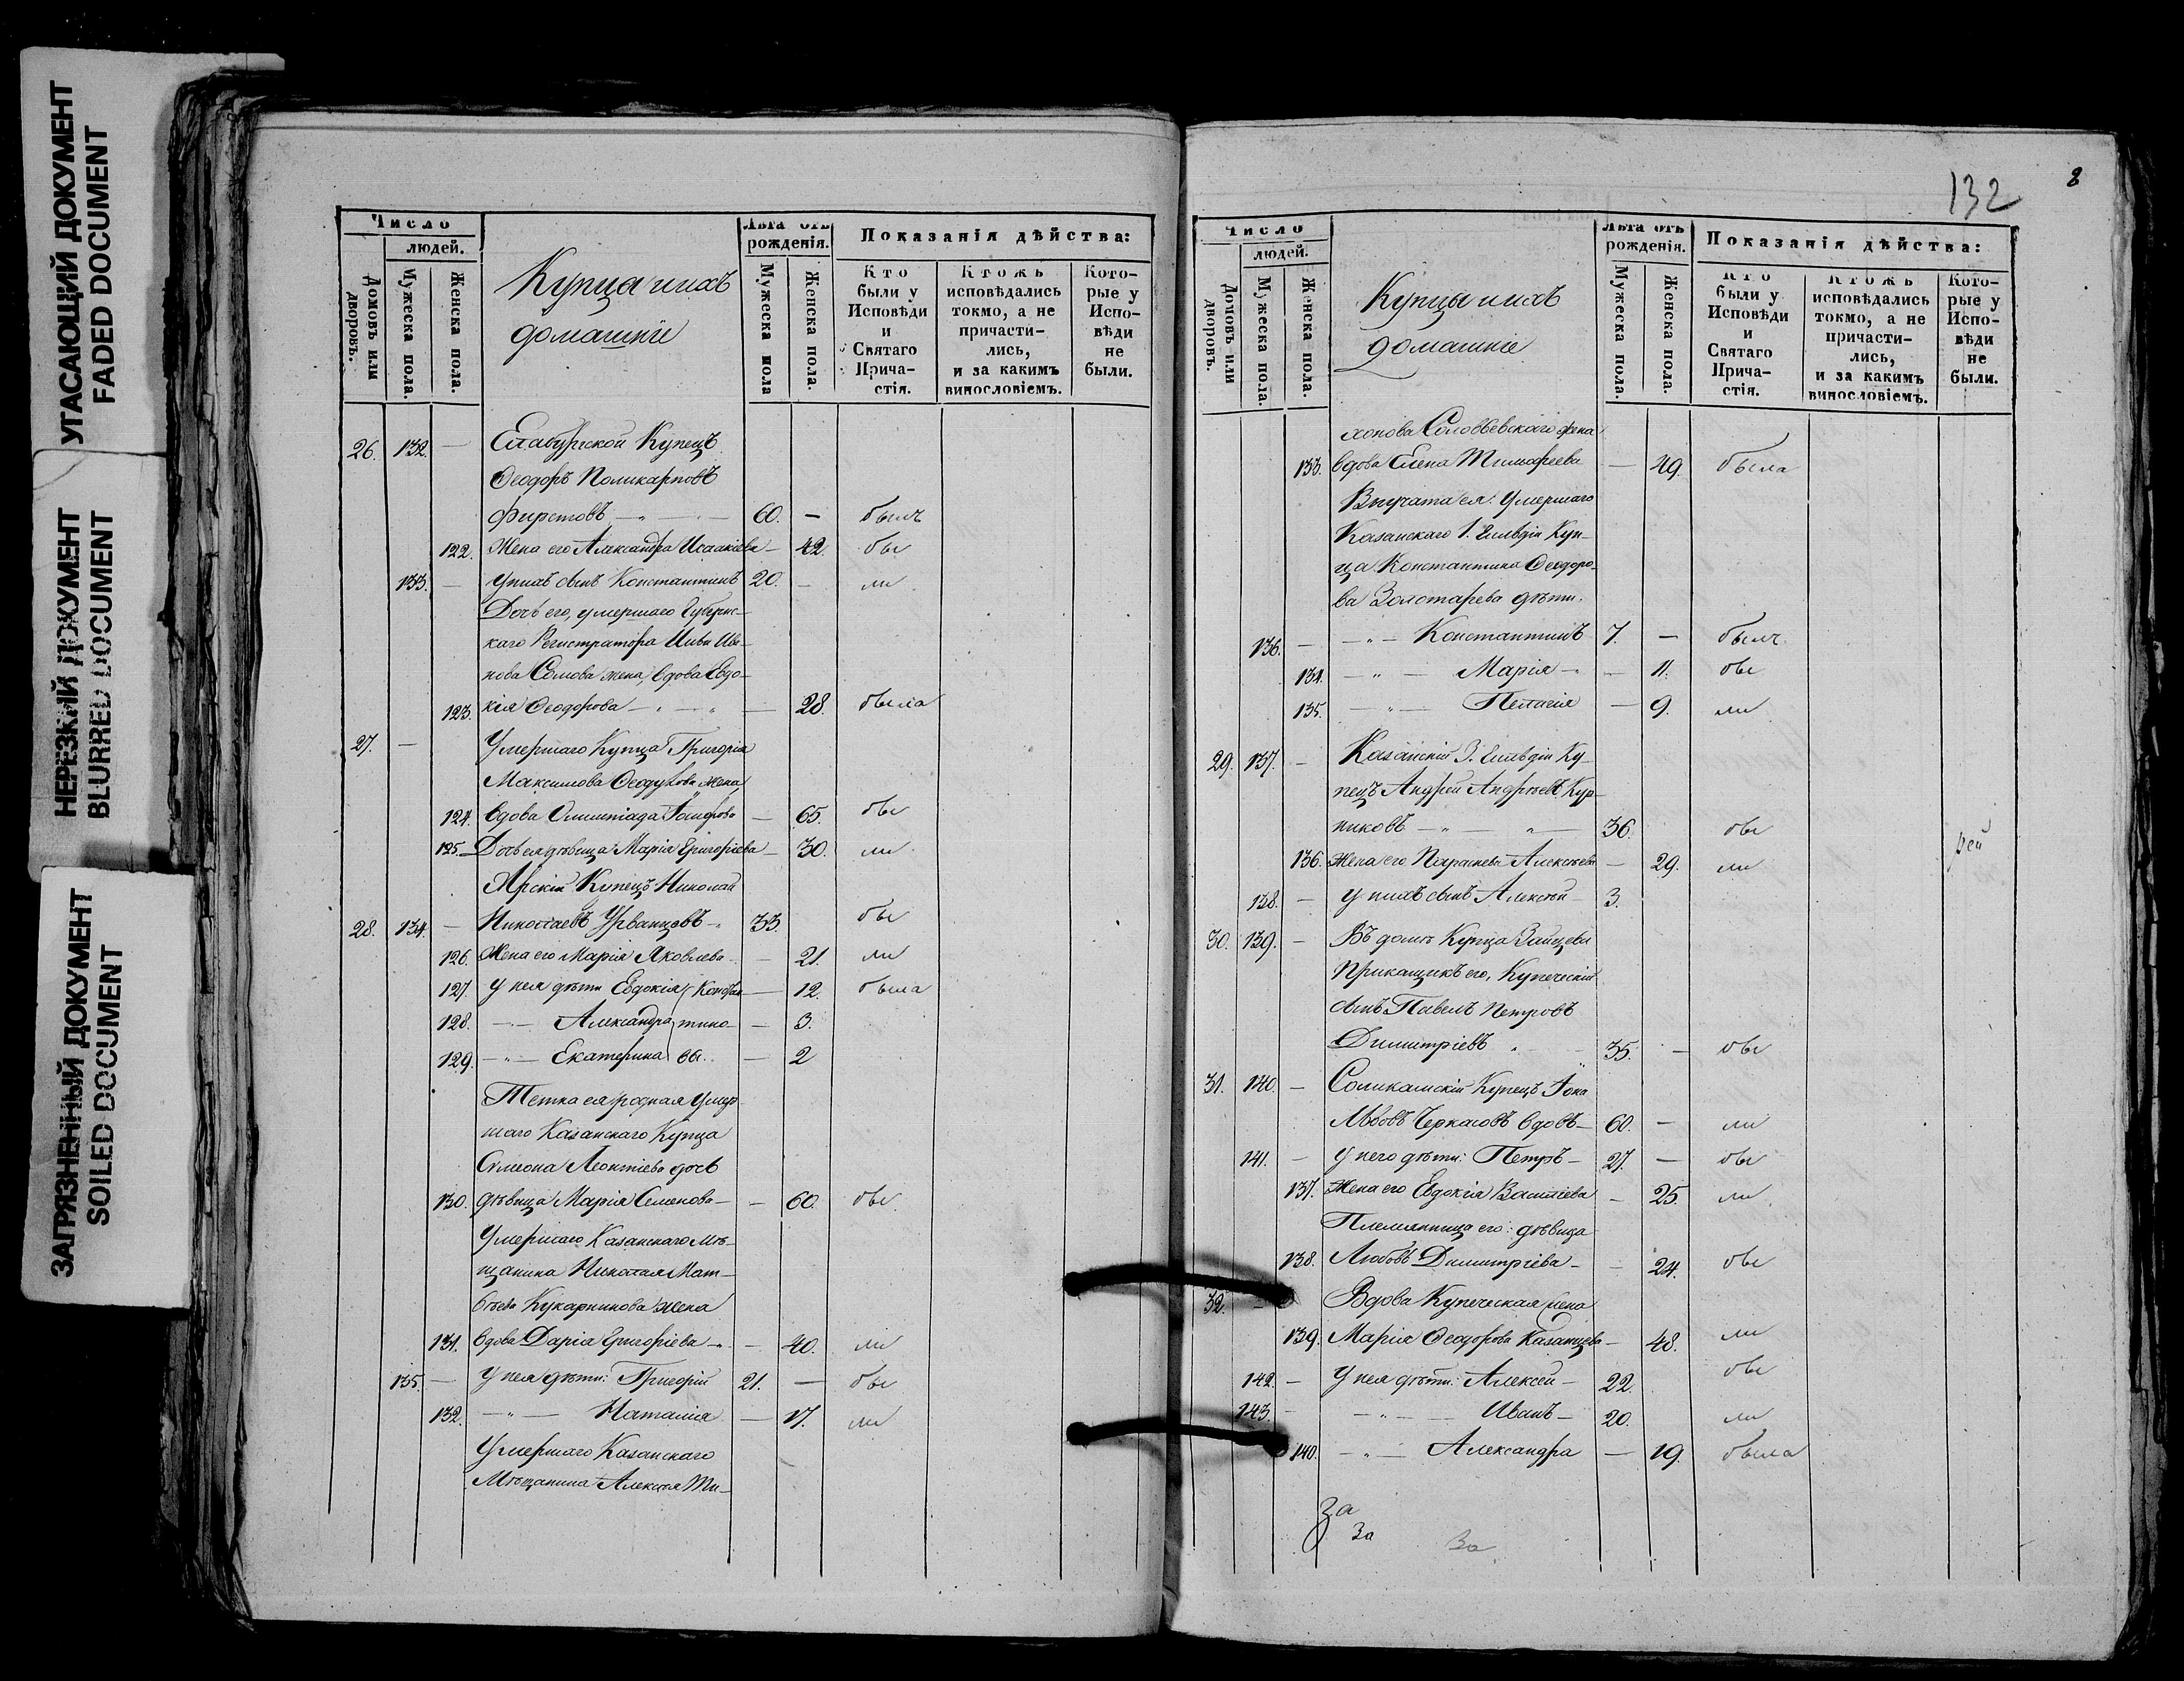 УГАСАЮЩИЙ ДОКУМЕНТ
FADED DOCUMENT
НЕРЕЗКИЙ ДОКУМЕНТ
BLURRED DOCUMENT
ЗАГРЯЗНЕННЫЙ ДОКУМЕНТ
SOILED DOCUMENT
Число
людей.
Домовъ или дворовъ.
Мужеска пола.
Женска пола.
Купцы и ихъ
домашніе
Лѣта отъ
рожденія.
Мужеска пола
Женска пола.
Показанія дѣйства:
Кто были у Исповѣди и Святаго Причастія.
Ктожъ исповѣдались токмо, а не причастились, и за какимъ винословіемъ.
Которые у Исповѣди не были.
26. 132. — Елабужской Купецъ
Ѳеодоръ Поликарповъ
Фирстовъ — 60. — былъ
122. Жена его Александра Исаакіева — 42. бы
133. — У нихъ сынъ Константинъ 20. — ли
Дочь его, умершаго Губернс-
каго Регистратора Ива-
нова Сомова жена, вдова Евдо-
123. кія Ѳеодорова — 28. была
27. — Умершаго Купца Григорія
Максимова жена,
124. вдова Олимпіада — 65. бы
125. Дочь ея дѣвица Марія Григоріева — 30. ли
Арскій Купецъ Николай
28. 134. — Николаевъ Урванцовъ 33. бы
126. Жена его Марія Яковлева — 21. ли
127. У нея дѣти Евдокія Констан — 12. была
128. — Александра тино — 3.
129. — Екатерина вы. — 2
Тетка ея родная Умер-
шаго Казанскаго Купца
Симеона Леонтіева дочь
130. дѣвица Марія Семенова — 60. бы
Умершаго Казанскаго Мѣ-
щанина Николая Мат-
вѣева Кукарникова жена
131. вдова Дарія Григоріева — 40. ли
135. — У нея дѣти: Григорій 21. — бы
132. — Наталія — 17. ли
Умершаго Казанскаго
Мѣщанина Алексѣя Ти-
132
8
Число
людей.
Домовъ или дворовъ.
Мужеска пола.
Женска пола.
Купцы и ихъ
домашніе
Лѣта отъ
рожденія.
Мужеска пола.
Женска пола.
Показанія дѣйства:
Кто были у Исповѣди и Святаго Причастія.
Ктожъ исповѣдались токмо, а не причастились, и за какимъ винословіемъ.
Которые у Исповѣди не были.
хонова Соловьевскаго жена
133. вдова Елена Тимофеева — 49. была
Внучата ея: Умершаго
Казанскаго 1. Гильдіи Куп-
ца Константина Ѳеодоро-
ва Золотарева дѣти.
136. — Константинъ 7. — былъ
134. — Марія — 11. бы
135. — Пелагія — 9. ли
29. 137. — Казанскій 3. Гильдіи Ку-
пецъ Андрей Андреевъ Кур-
никовъ — 36. бы
136. Жена его Параскева Алексѣева — 29. ли
138. — У нихъ сынъ Алексѣй — 3.
30. 139. — Въ домѣ Купца Зайцева
Прикащикъ его, Купеческій
сынъ Павелъ Петровъ
Димитріевъ 35. — бы
31. 140. — Соликамскій Купецъ Іона
Львовъ Черкасовъ вдовъ — 60. — ли
141. — У него дѣти: Петръ — 27. — бы
137. Жена его Евдокія Василіева — 25. ли
Племянница его: дѣвица
138. Любовь Димитріева — 24. бы
32. — Вдова Купеческая жена
139. Марія Ѳеодорова Казанцева — 48. ли
142. — У нея дѣти: Алексѣй — 22. бы
143. — Иванъ — 20. ли
140. — Александра — 19. была
За
За
За
рей